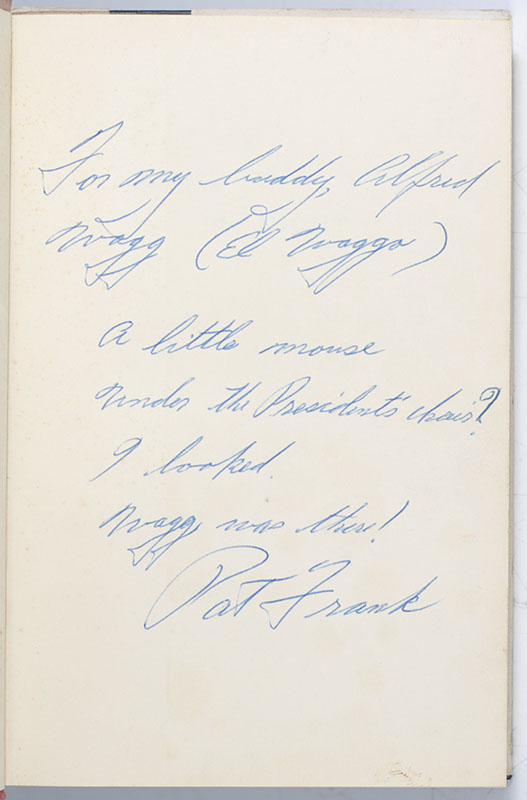 For my buddy, Alfred
Wagg (El Waggo)
A little mouse
Under the Presidents' chair?
I looked.
Wagg was there!
Pat Frank